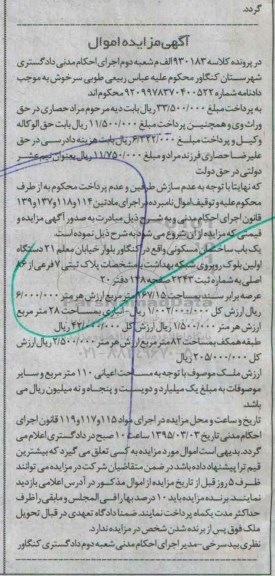 گردد.
آگهی مزایده اموال
در پرونده کلاسه ۹۳۰۱۸۳ الف م شعبه دوم اجرای احکام مدنی دادگستری
شهرستان کنگاور محکوم علیه عباس ربیعی طوبی سرخوش به موجب
دادنامه شماره ۹۲۰۹۹۷۸۳۷۰۴۰۰۵۲۲ محکوم اند
به پرداخت مبلغ ۳۳/۵۰۰/۰۰۰ ریال بابت دیه مرحوم مراد حصاری در حق
وراث وی و همچنین پرداخت مبلغ ۱۱/۵۰۰/۰۰۰ ریال بابت حق الوکاله
وکیل و پرداخت مبلغ ۶/۳۴۲/۰۰۰ ریال بابت هزینه دادرسی در حق
علیرضا حصاری فرزند مراد و مبلغ ۱۱/۷۵۰/۰۰۰ ریال بعنوان نیم عشر
دولتی در حق دولت
که نهایتا با توجه به عدم سازش طرفین و عدم پرداخت محکوم به از طرف
محکوم علیه و توقیف اموال نامبرده در اجرای مادتین ۱۱۴ و ۱۱۸ و ۱۳۷ و ۱۳۹
قانون اجرای احکام مدنی و به شرح ذیل مبادرت به صدور آگهی مزایده و
قیمتی که مزایده از آن شروع می شود به شرح ذیل نموده است.
یک باب ساختمان مسکونی واقع در کنگاور بلوار خیابان معلم ۲۱ دستگاه
اولین بلوک روبروی شبکه بهداشت به مشخصات پلاک ثبتی ۷ فرعی از ۸۶
اصلی به شماره ثبت ۲۲۴۳ صفحه ۱۳۸ دفتر ۲۰
عرصه برابر سند بمساحت ۱۶۷/۱۵ متر مربع ارزش هر متر ۶/۰۰۰/۰۰۰
ریال ارزش کل ۱/۰۰۲/۰۰۰/۰۰۰ ریال - انباری بمساحت ۲۸ متر مربع
ارزش هر متر ۱/۵۰۰/۰۰۰ ریال ارزش کل ۴۲/۰۰۰/۰۰۰ ریال
طبقه همکف بمساحت ۸۲ متر مربع ارزش هر متر ۲/۵۰۰/۰۰۰ ریال ارزش
کل ۲۰۵/۰۰۰/۰۰۰ ریال
ارزش ملک موصوف با توجه به مساحت اعیانی ۱۱۰ متر مربع و سایر
موصوفات به مبلغ یک میلیارد و دویست و پنجاه و نه میلیون ریال می
باشد.
تاریخ و ساعت و محل مزایده در اجرای مواد ۱۱۵ و ۱۱۷ و ۱۱۹ قانون اجرای
احکام مدنی تاریخ ۱۳۹۵/۰۳/۰۳ ساعت ۱۰ صبح در دادگستری اعلام می
گردد. بدیهی است اموال مورد مزایده به کسی تعلق می گیرد که بیشترین
قیم ترا پیشنهاد داده باشد در ضمن متقاضیان شرکت در مزایده می توانند
ظرف ۵ روز قبل از تاریخ مزایده از اموال مذکور در آدرس اعلامی بازدید
نمایند. برنده مزایده باید ۱۰ درصد بها را فی المجلس و مابقی را ظرف
حداکثر مدت یکماه پرداخت نمایند. ضمنا دادگاه تعهدی در قبال تحویل
ملک فوق پس از برنده شدن شخص در مزایده ندارد.
نظری بیدسرخی - مدیر اجرای احکام مدنی شعبه دوم دادگستری کنگاور